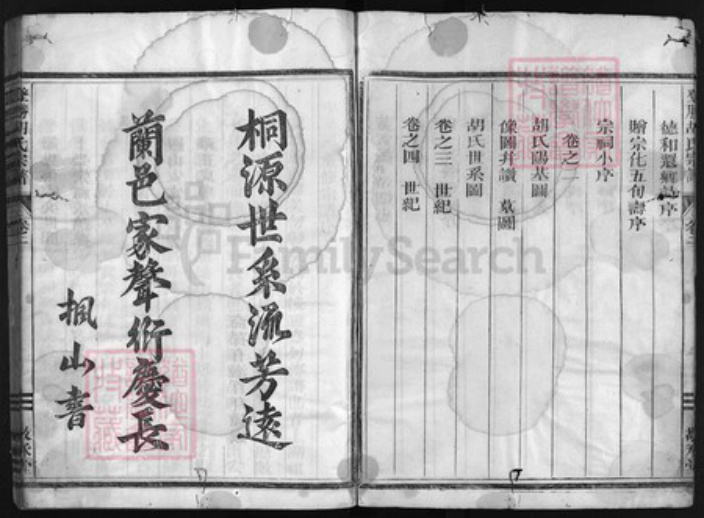 宗祠小序
贈宗化五旬壽序
卷之二
胡氏陽基圖
像圖并讚 墓圖
胡氏世系圖
卷之三 世紀
卷之四 世紀
桐源世系流芳遠
蘭邑家聲衍慶長
楓山書
FamilySearch